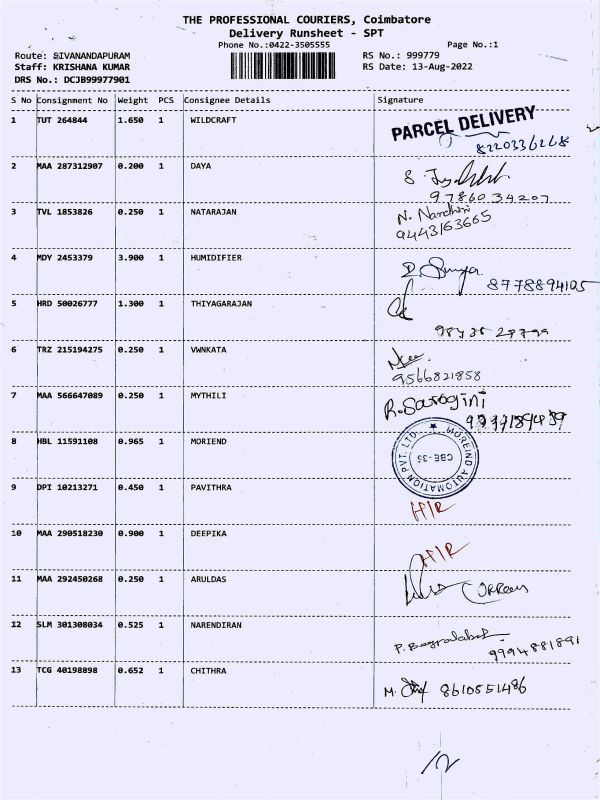 THE PROFESSIONAL COURIERS, Coimbatore
Delivery Runsheet - SPT
Phone No.:0422-3505555 Page No.:1
Route: SIVANANDAPURAM RS No.: 999779
Staff: KRISHANA KUMAR RS Date: 13-Aug-2022
DRS No.: DCJB99977901
S No Consignment No Weight PCS Consignee Details Signature
1 TUT 264844 1.650 1 WILDCRAFT PARCEL DELIVERY
8220336268
2 MAA 287312907 0.200 1 DAYA
9786034207
3 TVL 1853826 0.250 1 NATARAJAN N. Nandhini
9443163665
4 MDY 2453379 3.900 1 HUMIDIFIER
8778894105
5 HRD 50026777 1.300 1 THIYAGARAJAN
6 TRZ 215194275 0.250 1 VWNKATA
9566821858
7 MAA 566647089 0.250 1 MYTHILI R. Sarogini
8 HBL 11591108 0.965 1 MORIEND MOREIND AUTOMATION PVT. LTD.
CBE-35
9 DPI 10213271 0.450 1 PAVITHRA H/R
10 MAA 290518230 0.900 1 DEEPIKA H/R
11 MAA 292450268 0.250 1 ARULDAS
12 SLM 301308034 0.525 1 NARENDIRAN
9994881891
13 TCG 40198898 0.652 1 CHITHRA M. 8610551486
12